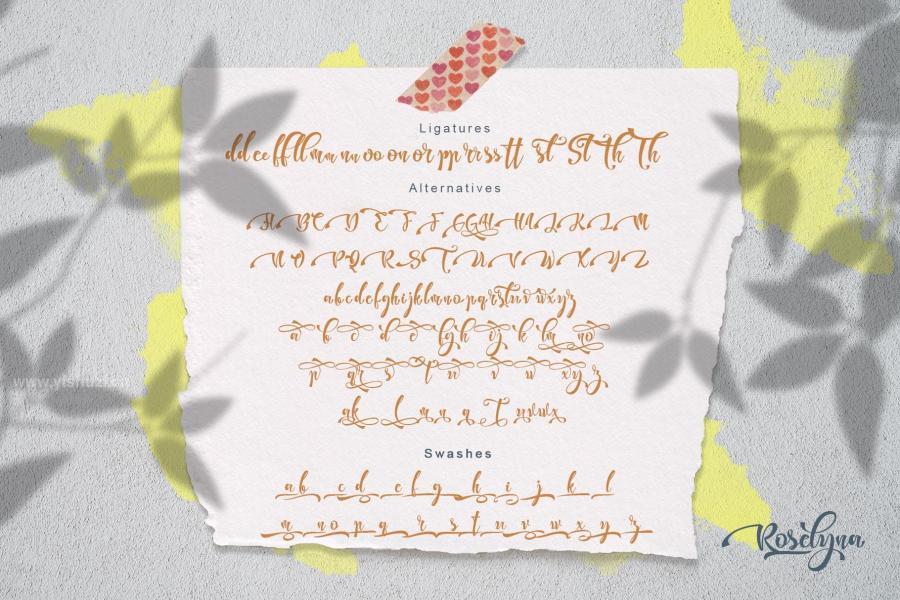 Ligatures
dd ee ff ll mm nn oo on or pp rr ss tt st St th Th
Alternatives
A B C D E F F G G H I J K L M
N O P Q R S T U V W X Y Z
a b c d e f g h i j k l m n o p q r s t u v w x y z
a b c d e f g h i j k l m n o
p q r s t u v w x y z
Swashes
a b c d e f g h i j k l
m n o p q r s t u v w x y z
Roselyna